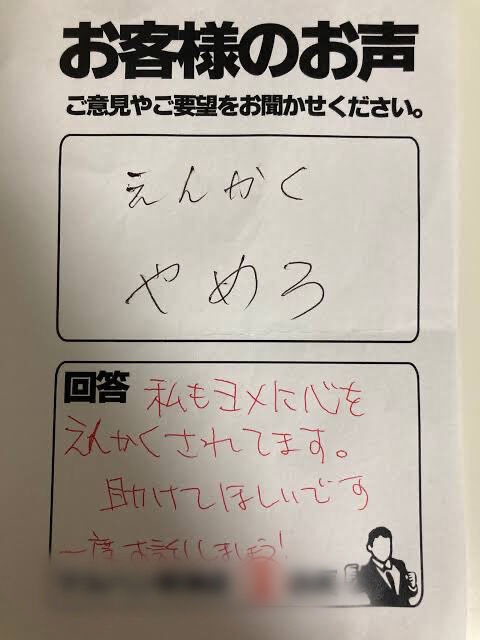 お客様のお声
ご意見やご要望をお聞かせください。
えんかく
やめろ
回答 私もヨメに心を
えんかくされてます。
助けてほしいです
一度お話しましょう!